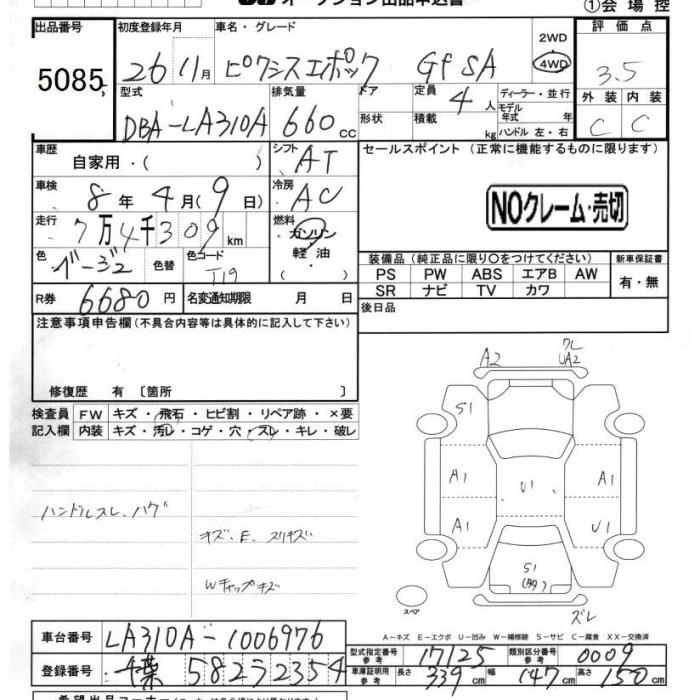 オークション出品申込書
①会場控
出品番号 5085
初度登録年月 26 11月
車名・グレード ピクシスエポック Gf SA
2WD 4WD
評価点 3.5
外装 C 内装 C
型式 DBA-LA310A
排気量 660 cc
ドア 形状
定員 4人
積載 kg
ディーラー・並行
モデル年式 年
ハンドル 左・右
車歴 自家用・( )
シフト AT
セールスポイント(正常に機能するものに限ります)
車検 8年4月(9日)
冷房 AC
NOクレーム・売切
走行 7万4千309km
燃料 ガソリン
軽油・
( )
色 ベージュ 色替
色コード T19
装備品(純正品に限り○をつけてください)
新車保証書
PS PW ABS エアB AW
有・無
SR ナビ TV カワ
R券 6680円
名変通知期限 月 日
後日品
注意事項申告欄(不具合内容等は具体的に記入して下さい)
修復歴 有 〔箇所 〕
検査員記入欄
FW キズ・飛石・ヒビ割・リペア跡・×要
内装 キズ・汚レ・コゲ・穴・スレ・キレ・破レ
ハンドルスレ、ハゲ
キズ、E、スリキズ
Wチップキズ
A2
UA2
S1
A1
A1
U1
A1
U1
S1
スペア
ズレ
A-キズ E-エクボ U-凹み W-補修跡 S-サビ C-腐食 XX-交換済
車台番号 LA310A-1006976
型式指定番号 参考 17125
類別区分番号 参考 0009
登録番号 千葉 582
車庫証明用 参考 長さ 339cm 幅 147cm 高さ 150cm